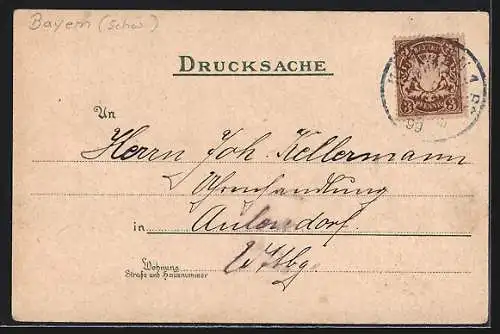 Bayern (Schw)
DRUCKSACHE
An
Herrn Joh. Kellermann
Uhrenhandlung
in Aulendorf.
Wttbg.
Wohnung
Straße und Hausnummer
3 3
99